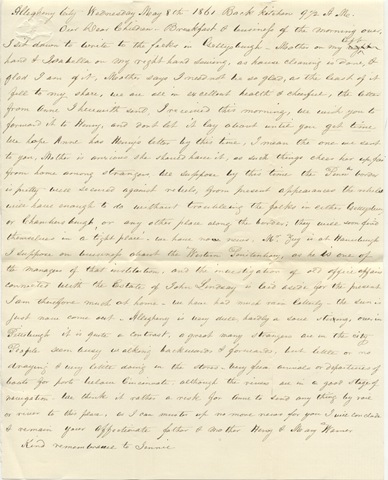 Allegheny City Wednesday May 8th 1861 Back Kitchen 9 1/2 A.M.
Our Dear Children. Breakfast & worship of the morning over,
I sit down to write to the folks in Gettysburgh. Mother on my left
hand & Isabella on my right hand sewing, as house cleaning is done, &
glad I am of it. Mother says I need not be so glad, as the least of it
fell to my share, we are all in excellent health & cheerful, the letter
from Anne I herewith send, I received this morning, we wish you to
forward it to Henry, and don't let it lay about until you get time.
We hope Anne has Henrys letter by this time, I mean the one we sent
to you, Mother is anxious she should have it, as such things cheer up
from home among strangers. We suppose by this time the Penn border
is pretty well secured against rebels, from present appearances the rebels
will have enough to do without troubling the folks in either Gettysburgh
or Chambersburgh or any other place along the border, they will soon find
themselves in a tight place. We have none news. Mr. is at Harrisburgh
I suppose on business about the Western Penitentiary, as he is one of
the managers of that institution, and the investigation of old office affairs
connected with the Estate of John Lindsay is laid aside for the present
I am therefore much at home. We have had much rain latterly. the sun is
just now come out. Allegheny is very dull hardly a soul stirring, over in
Pittsburgh it is quite a contrast, a great many strangers are in the city
People seem busy walking backwards & forwards, but little or no
draying & very little doing in the stores. Very few arrivals or departures of
boats for ports below Cincinnati, although the rivers are in a good stage of
navigation. We think it rather a risk for Anne to send any thing by rail
or river to this place, as I can muster up no more news for you I will conclude
& remain your affectionate father & mother Henry & Mary
Kind remembrance to Jennie